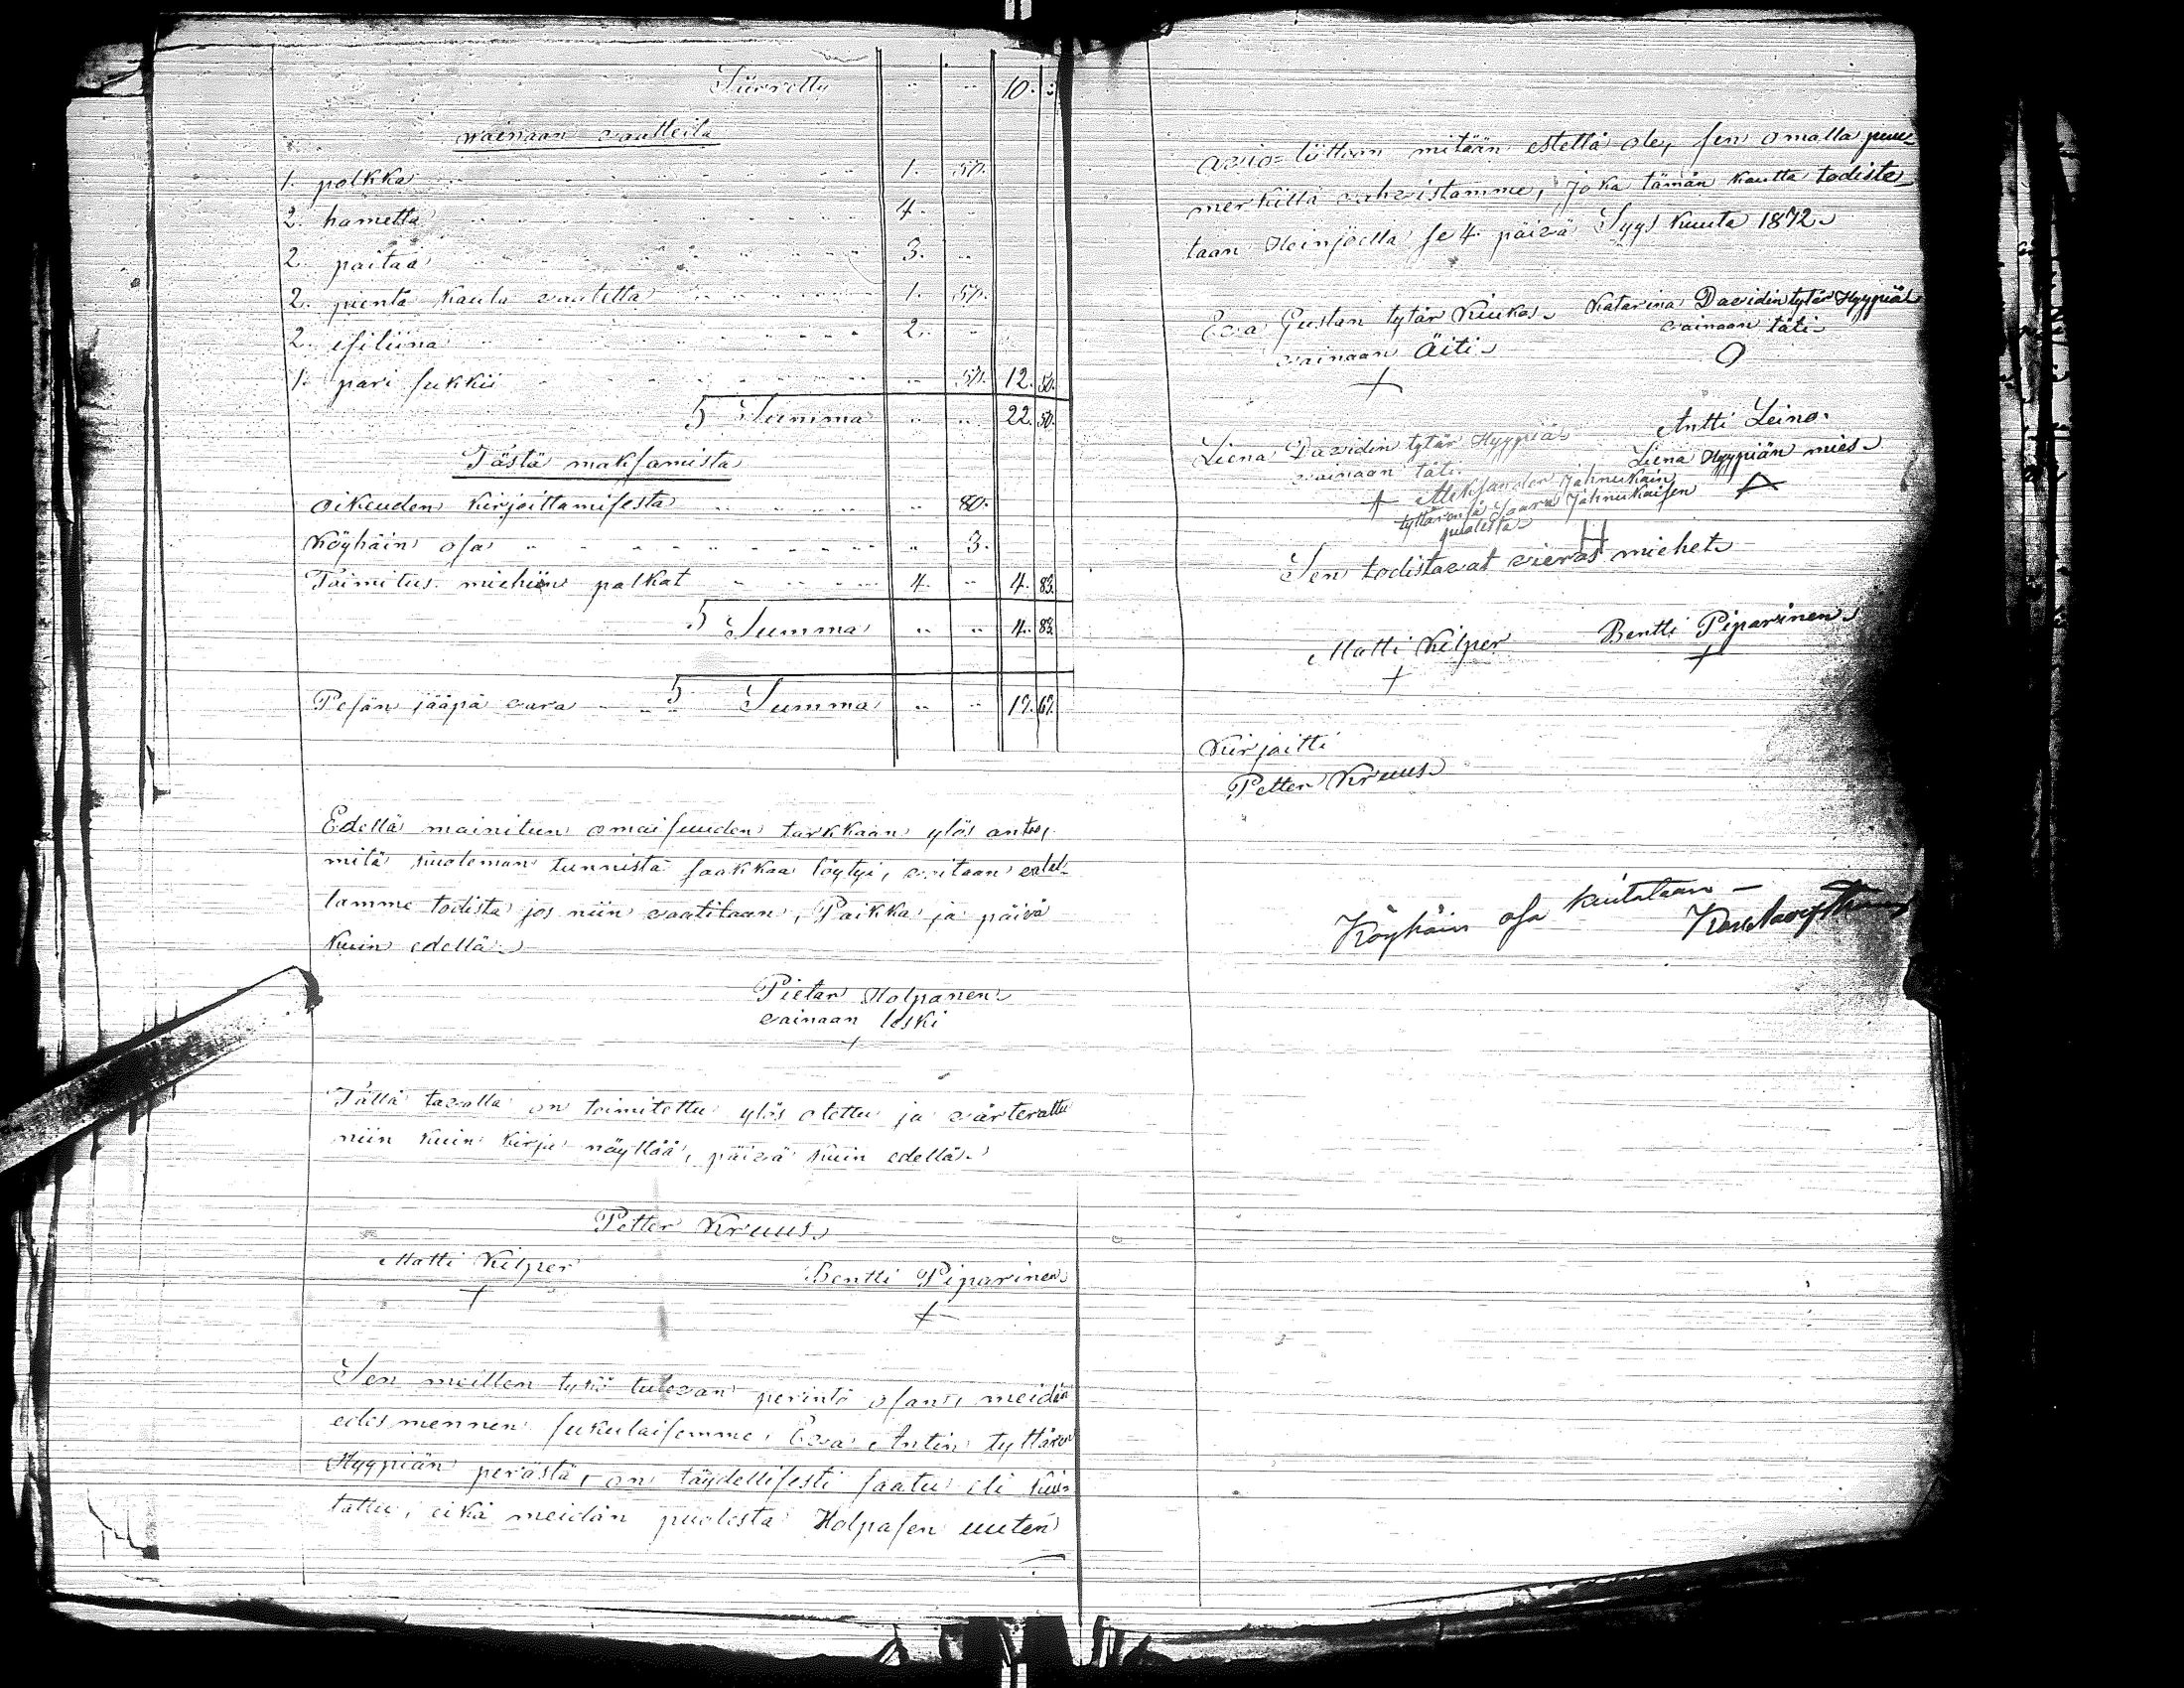 Siirretty " " 10. "
wainaan vaatteita
1. polkka " " 1. 50.
2. hametta " " 4. "
2. paitaa " " 3. "
2. pientä kaula vaatetta " " 1. 50.
2. esiliina " " 2. "
1. pari sukkii " " " 50. 12. 50.
Summa " " 22. 50.
Tästä maksamista
oikeuden kirjoittamisesta " " " 80.
Köyhäin osa " " " 3.
Toimitus miehiin palkat " " 4. " 4. 83.
Summa " " 4. 83.
Pesän jääpä vara " " Summa " " 17. 67.
Edellä mainitun omaisuuden tarkkaan ylös antoo,
mitä kuoleman tunnista saakkaa löytyi, voitaan valal-
lamme todista jos niin vaatitaan, Paikka ja päivä
kuin edellä.
Pietar Holpanen
vainaan leski
+
Tällä tavalla on toimitettu ylös otettu ja värterattu
niin kuin kirja näyttää, päivä kuin edellä.
Petter Kruus
Matti Kilper
+
Bentti Piparinen
+
Sen meillen tykö tulevan perintö osan, meidän
edesmennen sukulaisemme Eva Antin tyttären
Hyypiän perästä, on täydellisesti saatu eli kui-
tattu, eikä meidän puolesta Holpasen uuten
avio-liittoon mitään estettä ole, sen omalla puu-
merkillä vahvistamme, joka tämän kautta todiste-
taan Heinjoella se 4. päivä Syys kuuta 1872.
Eva Gustan tytär Kiukas
vainaan äiti
+
Katarina Davidin tytär Hyypiä
vainaan täti
O
Liena Davidin tytär Hyypiä
vainaan täti
Antti Leino.
Liena Hyypiän mies
Aleksander Jähnukain
tyttärensä Saara Jähnukaisen
puolesta
H
Sen todistavat vieras miehet
Matti Kilper
+
Bentti Piparinen
+
Kirjoitti
Petter Kruus
Köyhäin osa kuitataan –